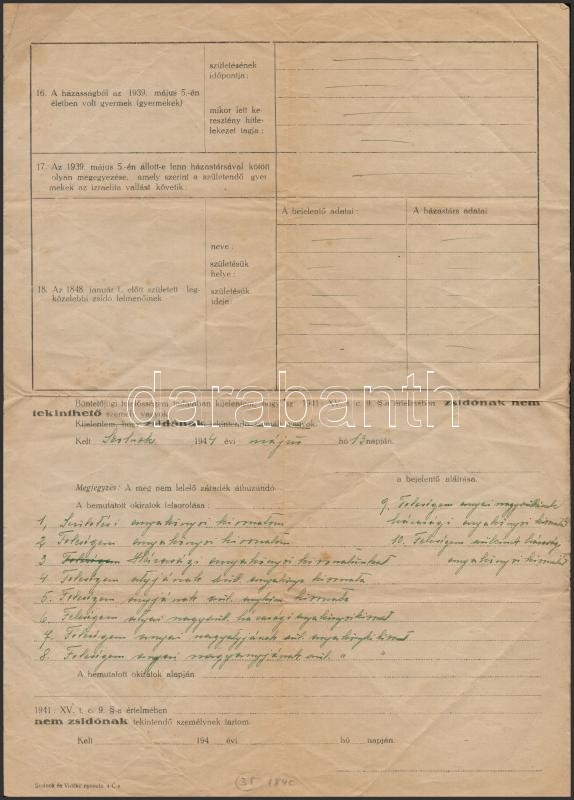 16. A házasságból az 1939. május 5.-én
életben volt gyermek (gyermekek)
születésének
időpontja:
mikor lett ke-
resztény hitfe-
lekezet tagja:
17. Az 1939. május 5.-én állott-e fenn házastársával kötött
olyan megegyezése, amely szerint a születendő gyer
mekek az izraelita vallást követik:
A bejelentő adatai:
A házastárs adatai
18. Az 1848. január 1. előtt született leg-
közelebbi zsidó felmenőinek
neve:
születésük
helye:
születésük
ideje:
darabanth
Büntetőjogi felelősségem tudatában kijelentem, hogy az 1941 XV. t. c. 9. §-a értelmében zsidónak nem
tekinthető személy vagyok.
Kijelentem, hogy zsidónak tekintendő személy vagyok.
Kelt Szolnok 1944 évi május hó 13 napján.
a bejelentő aláírása.
Megjegyzés: A meg nem felelő záradék áthúzandó.
A bemutatott okiratok felsorolása:
1, Születési anyakönyvi kivonatom
2 Feleségem anyakönyvi kivonatom
3 Feleségem Házassági anyakönyvi kivonatunkat
4 Feleségem atyjának szül. anyakönyv kivonata
5. Feleségem anyjának szül. kivonata
6. Feleségem atyai házassági anyakönyvi
7. Feleségem anyai nagyatyjának szül. anyakönyvi
8. Feleségem anyai nagyanyjának szül. " "
9. Feleségem anyai nagyszüleinek
házassági anyakönyvi kivonata
10. Feleségem szüleinek házassági
anyakönyvi kivonata
A bemutatott okiratok alapján
1941: XV. t. c. 9. §-a értelmében
nem zsidónak tekintendő személynek tartom.
Kelt 194 évi hó napján.
Szolnok és Vidéke nyomda